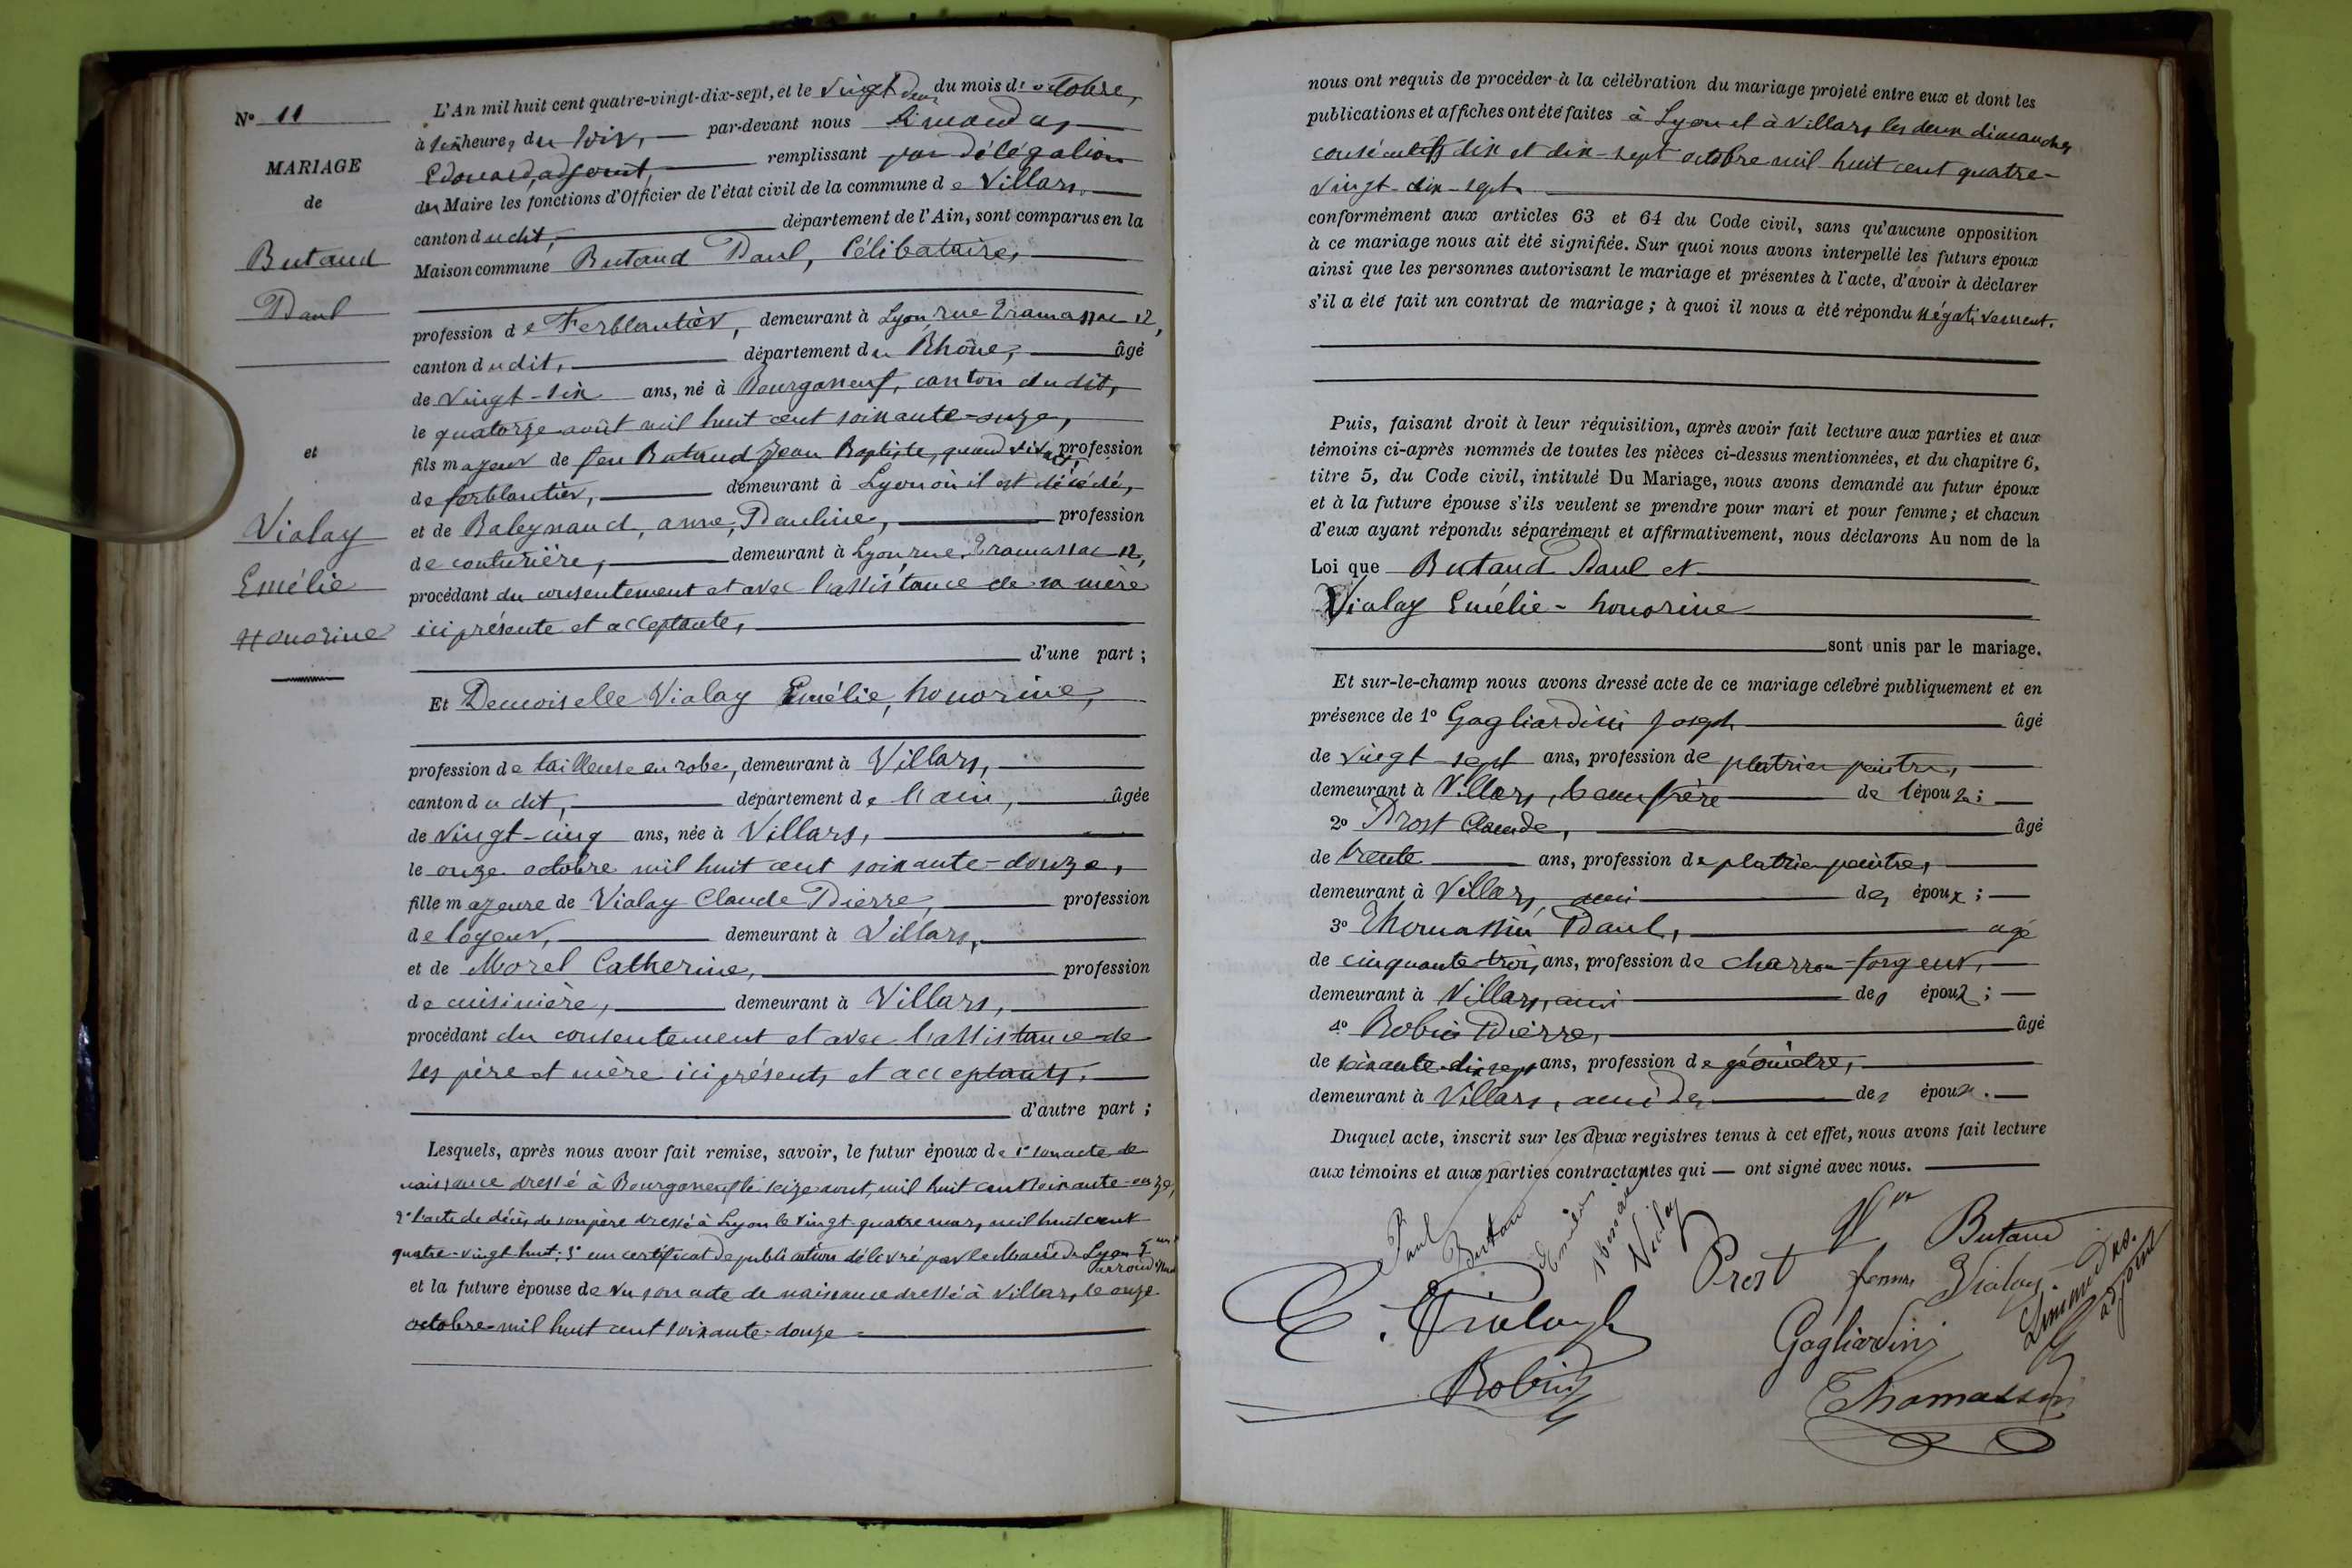 N° 11
MARIAGE
de
Butaud
Paul
et
Vialay
Emélie
Honorine
L'An mil huit cent quatre-vingt-dix-sept, et le vingt deux du mois de octobre,
à six heures du soir, par-devant nous Limandas
Edouard, adjoint, remplissant par délégation
du Maire les fonctions d'Officier de l'état civil de la commune de Villars
canton dudit, département de l'Ain, sont comparus en la
Maison commune Butaud Paul, Célibataire,
profession de Ferblantier, demeurant à Lyon rue Tramassac 12,
canton dudit, département du Rhône, âgé
de vingt-six ans, né à Bourganeuf, canton dudit,
le quatorze août mil huit cent soixante-onze,
fils majeur de feu Butaud Jean Baptiste, quand vivait profession
de ferblantier, demeurant à Lyon où il est décédé,
et de Baleynaud, anne, Pauline, profession
de couturière, demeurant à Lyon, rue Tramassac 12,
procédant du consentement et avec l'assistance de sa mère
ici présente et acceptante,
d'une part;
Et Demoiselle Vialay Emélie, honorine,
profession de tailleuse en robes, demeurant à Villars,
canton dudit, département de l'ain, âgée
de vingt-cinq ans, née à Villars,
le onze octobre mil huit cent soixante-douze,
fille majeure de Vialay Claude Pierre, profession
de logeur, demeurant à Villars,
et de Morel Catherine, profession
de cuisinière, demeurant à Villars,
procédant du consentement et avec l'assistance de
ses père et mère ici présents et acceptants,
d'autre part;
Lesquels, après nous avoir fait remise, savoir, le futur époux de 1° son acte de
naissance dressé à Bourganeuf le seize aout, mil huit cent soixante-onze,
2° l'acte de décès de son père dressé à Lyon le vingt-quatre mars, mil huit cent
quatre-vingt-huit; 3° un certificat de publication délivré par le Maire de Lyon 5me arrond.
et la future épouse de Vu son acte de naissance dressé à Villars, le onze
octobre mil huit cent soixante-douze
nous ont requis de procéder à la célébration du mariage projeté entre eux et dont les
publications et affiches ont été faites à Lyon et à Villars les deux dimanches
consécutifs dix et dix-sept octobre mil huit cent quatre-
vingt-dix-sept
conformément aux articles 63 et 64 du Code civil, sans qu'aucune opposition
à ce mariage nous ait été signifiée. Sur quoi nous avons interpellé les futurs époux
ainsi que les personnes autorisant le mariage et présentes à l'acte, d'avoir à déclarer
s'il a été fait un contrat de mariage; à quoi il nous a été répondu négativement.
Puis, faisant droit à leur réquisition, après avoir fait lecture aux parties et aux
témoins ci-après nommés de toutes les pièces ci-dessus mentionnées, et du chapitre 6,
titre 5, du Code civil, intitulé Du Mariage, nous avons demandé au futur époux
et à la future épouse s'ils veulent se prendre pour mari et pour femme; et chacun
d'eux ayant répondu séparément et affirmativement, nous déclarons Au nom de la
Loi que Butaud Paul et
Vialay Emélie-honorine
sont unis par le mariage.
Et sur-le-champ nous avons dressé acte de ce mariage célébré publiquement et en
présence de 1° Gagliardini Joseph âgé
de vingt-sept ans, profession de platrier peintre,
demeurant à Villars, beau frère de l'épouse;
2° Prost Claude, âgé
de trente ans, profession de platrier peintre,
demeurant à Villars, ami des époux;
3° Thomassin Paul, agé
de cinquante-trois ans, profession de charron-forgeur,
demeurant à Villars, ami des époux;
4° Robin Pierre, âgé
de soixante-dix sept ans, profession de géomètre,
demeurant à Villars, ami des des époux.
Duquel acte, inscrit sur les deux registres tenus à cet effet, nous avons fait lecture
aux témoins et aux parties contractantes qui — ont signé avec nous.
Paul Butaud
Emélie Vialay
Vve Butaud
Prost
femme Vialay
C. Vialay
Gagliardini
Limandas adjoint
Robin
Thomassin